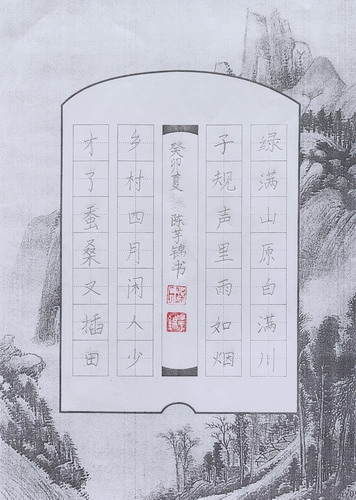 绿满山原白满川
子规声里雨如烟
乡村四月闲人少
才了蚕桑又插田
癸卯夏 陈芊锦书